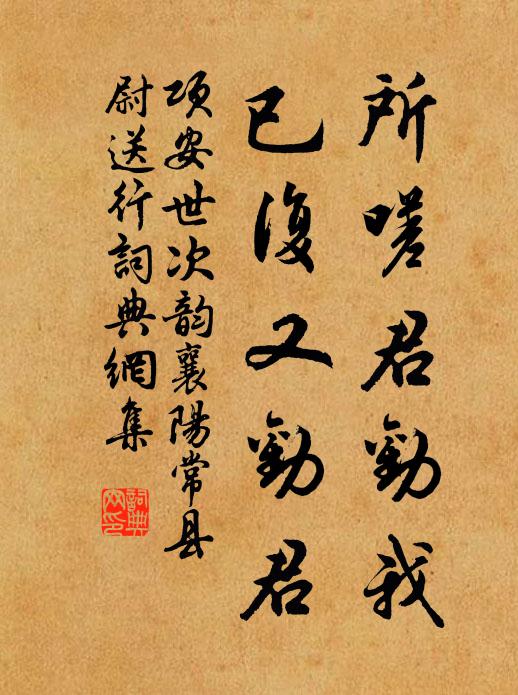 所嗟君勸我
已復又勸君
項安世次韵襄陽常县
尉送行詞典網集
詞典网印